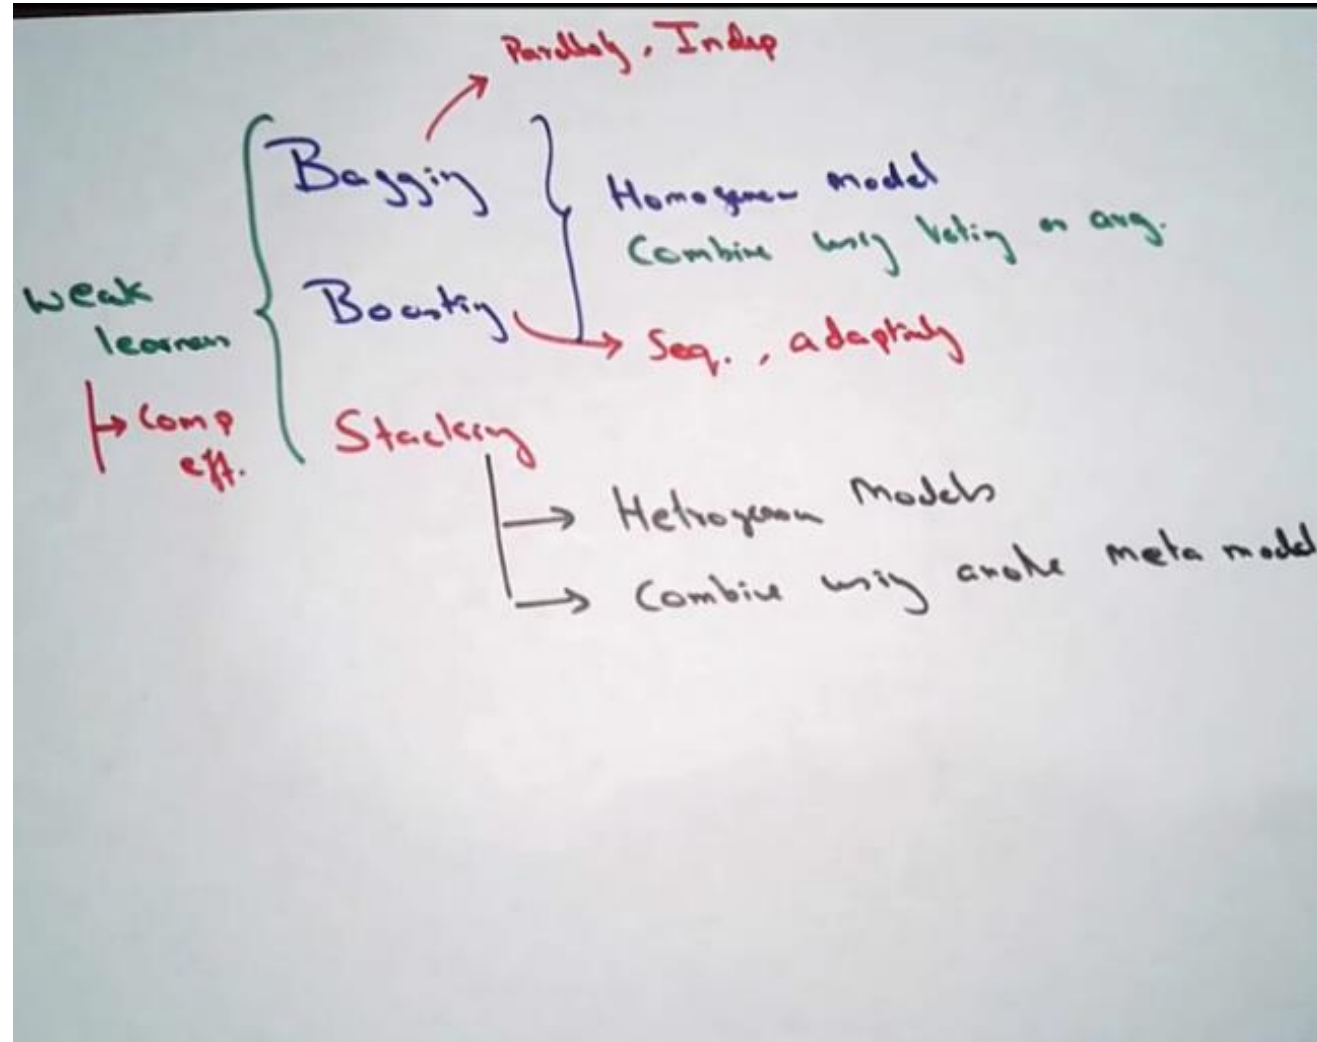 Parallely, Indep
Bagging
Homogenous model
Combine using Voting or avg.
weak
learners
Boosting
Seq., adaptively
Comp
eff.
Stacking
Hetrogenous Models
Combine using anothe meta model